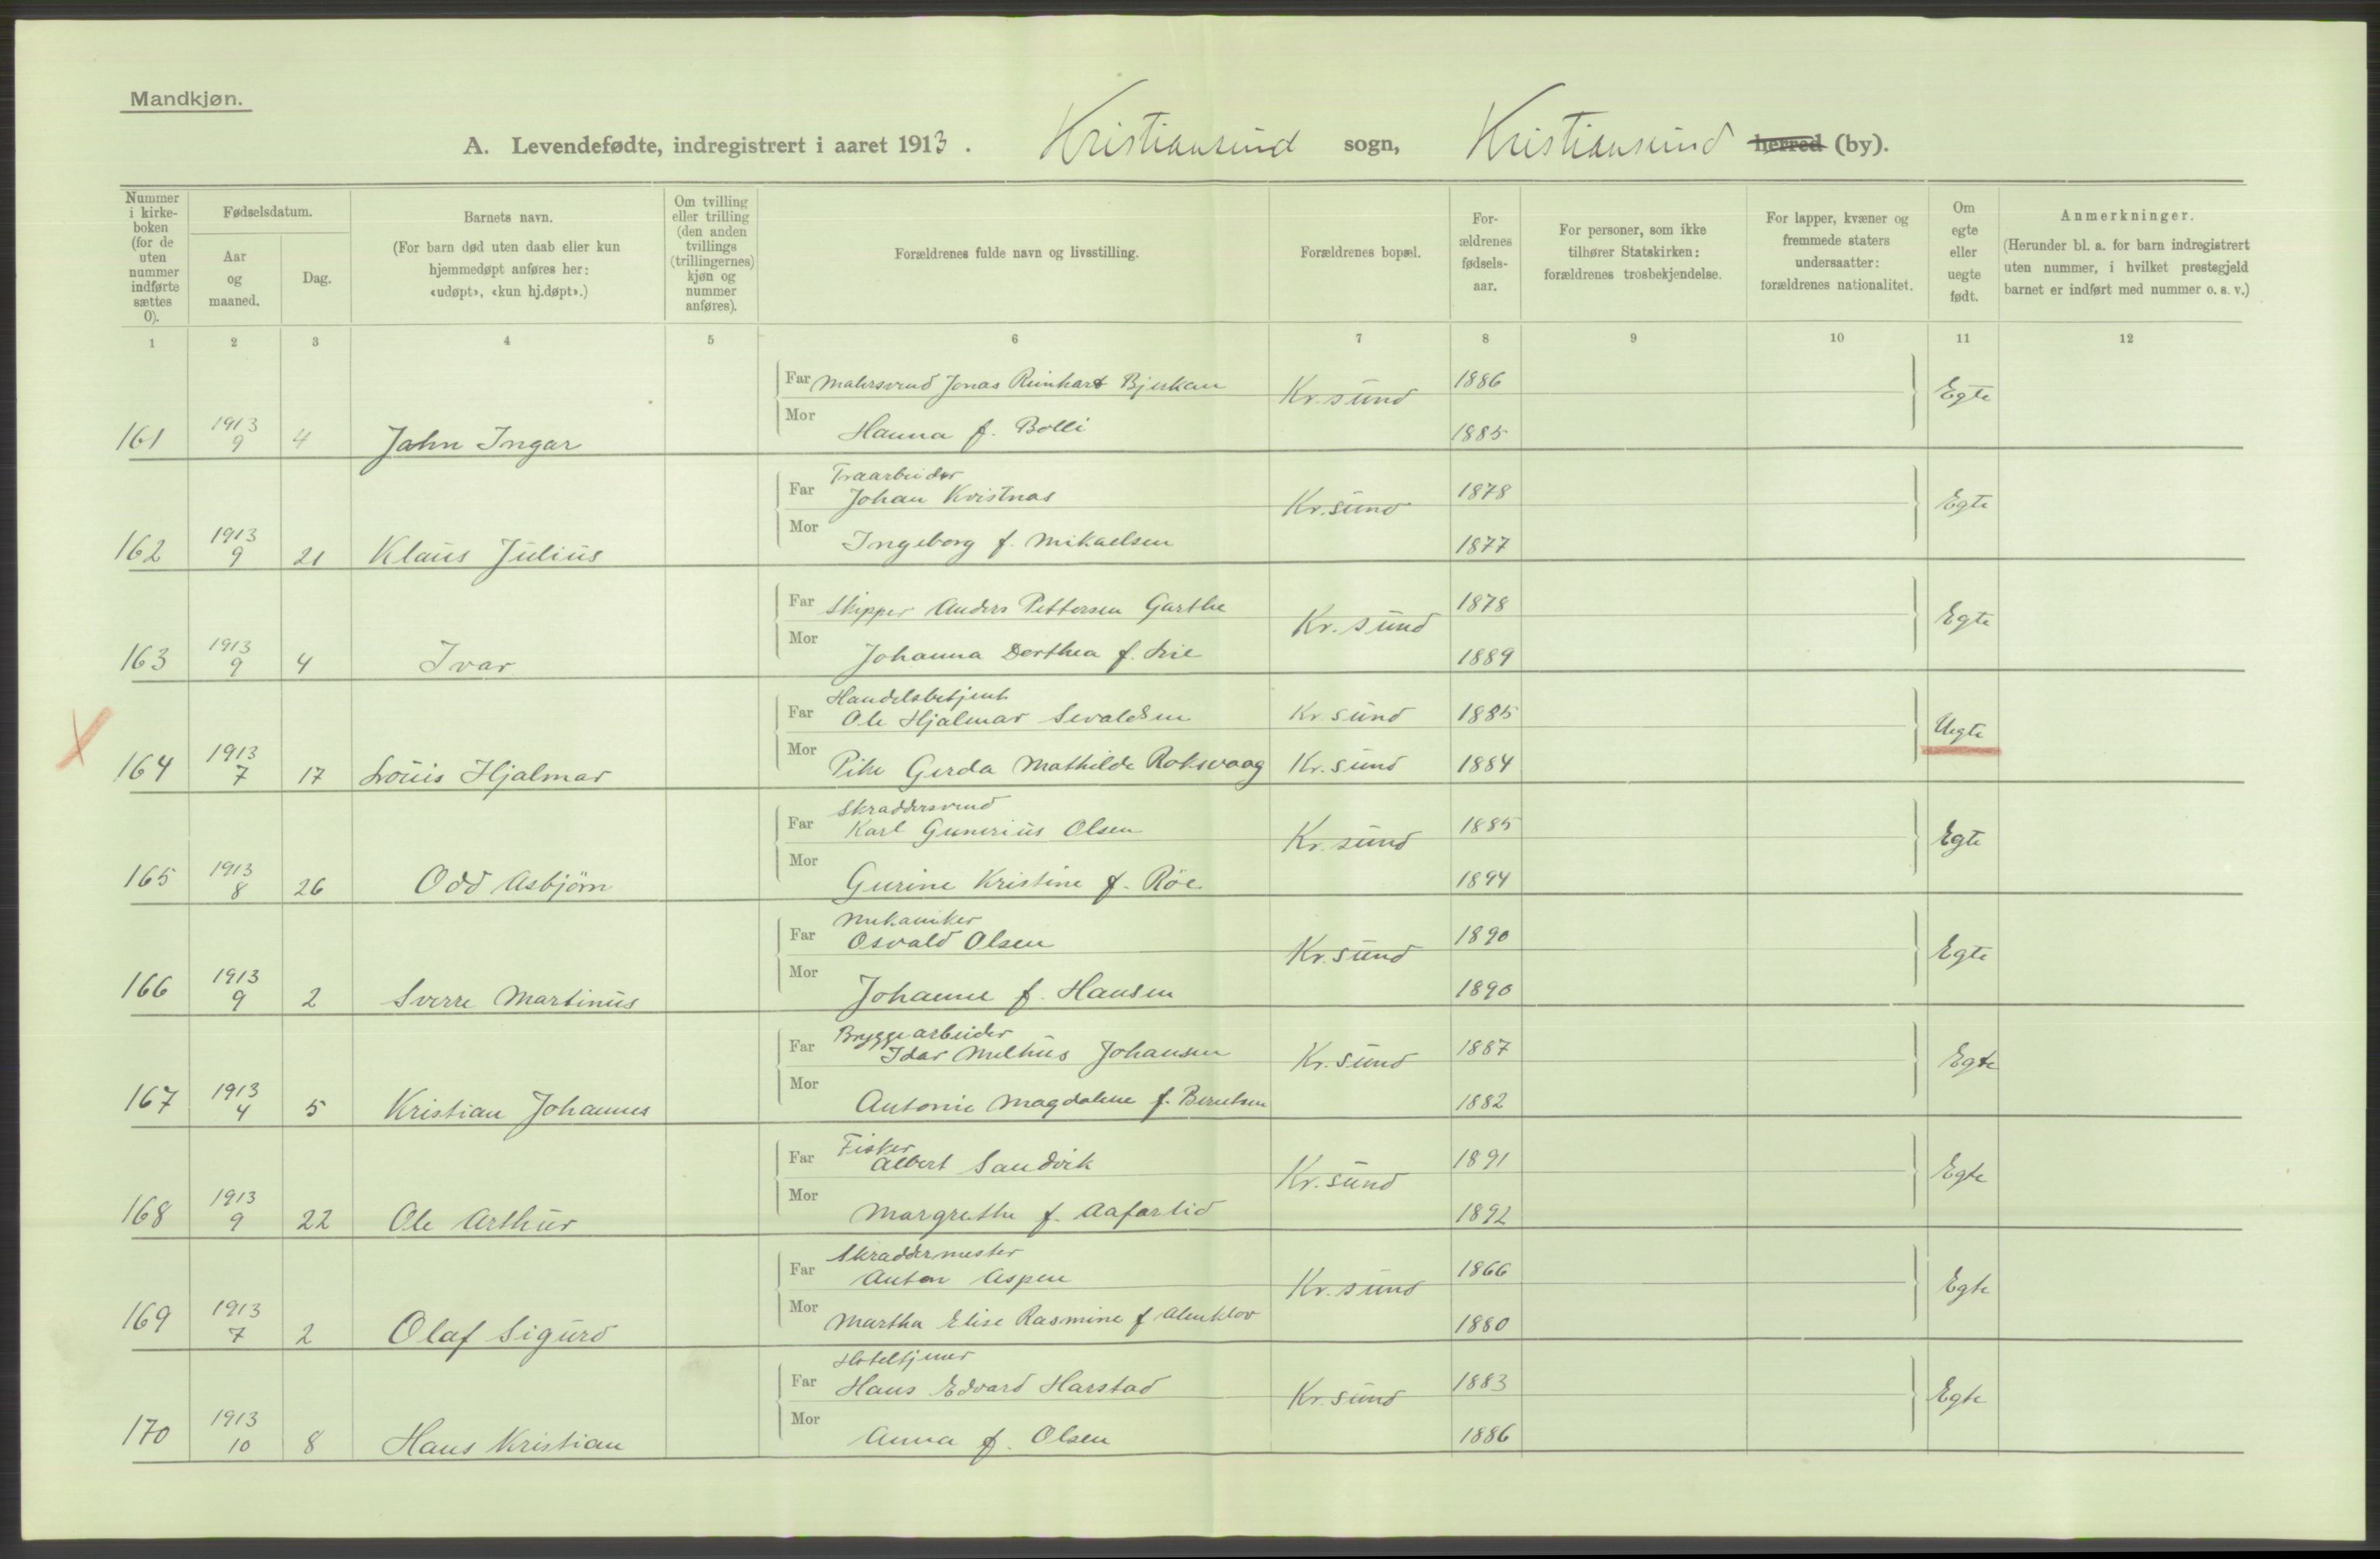 Mandkjøn.
A. Levendefødte, indregistrert i aaret 1913. Kristiansund sogn, Kristiansund herred (by).
Nummer i kirke-boken (for de uten nummer indførte sættes 0).
Fødselsdatum.
Aar og maaned.
Dag.
Barnets navn.
(For barn død uten daab eller kun hjemmedøpt anføres her: «udøpt», «kun hj.døpt».)
Om tvilling eller trilling (den anden tvillings (trillingernes) kjøn og nummer anføres).
Forældrenes fulde navn og livsstilling.
Forældrenes bopæl.
For-ældrenes fødsels-aar.
For personer, som ikke tilhører Statskirken: forældrenes trosbekjendelse.
For lapper, kvæner og fremmede staters undersaatter: forældrenes nationalitet.
Om egte eller uegte født.
Anmerkninger.
(Herunder bl. a. for barn indregistrert uten nummer, i hvilket prestegjeld barnet er indført med nummer o. s. v.)
1 2 3 4 5 6 7 8 9 10 11 12
Far Malersvend Jonas Reinhart Bjerkan Kr.sund 1886 Egte
161 1913 9 4 Jahn Ingar
Mor Hanna f. Bolli 1885
Træarbeider
Far Johan Kvistnas Kr.sund 1878 Egte
162 1913 9 21 Klaus Julius
Mor Ingeborg f. Mikaelsen 1877
Far Skipper Anders Pettersen Garthe Kr.sund 1878 Egte
163 1913 9 4 Ivar
Mor Johanna Dorthea f. Lie 1889
Handelsbetjent
Far Ole Hjalmar Sevaldsen Kr.sund 1885 Uegte
164 1913 7 17 Louis Hjalmar
Mor Pike Gerda Mathilde Roksvaag Kr.sund 1884
Skræddersvend
Far Karl Gunerius Olsen Kr.sund 1885 Egte
165 1913 8 26 Odd Asbjörn
Mor Gurine Kristine f. Röe 1894
Mekaniker
Far Osvald Olsen Kr.sund 1890 Egte
166 1913 9 2 Sverre Martinus
Mor Johanne f. Hansen 1890
Bryggearbeider
Far Idar Melhus Johansen Kr.sund 1887 Egte
167 1913 4 5 Kristian Johannes
Mor Antonie Magdalene f. Berntsen 1882
Fisker
Far Albert Sandvik Kr.sund 1891 Egte
168 1913 9 22 Ole Arthur
Mor Margrethe f. Aafarlid 1892
Skræddermester
Far Anton Aspen Kr.sund 1866 Egte
169 1913 7 2 Olaf Sigurd
Mor Martha Elise Rasmine f 1880
Hoteltjener
Far Hans Edvard Harstad Kr.sund 1883 Egte
170 1913 10 8 Hans Kristian
Mor Anna f. Olsen 1886